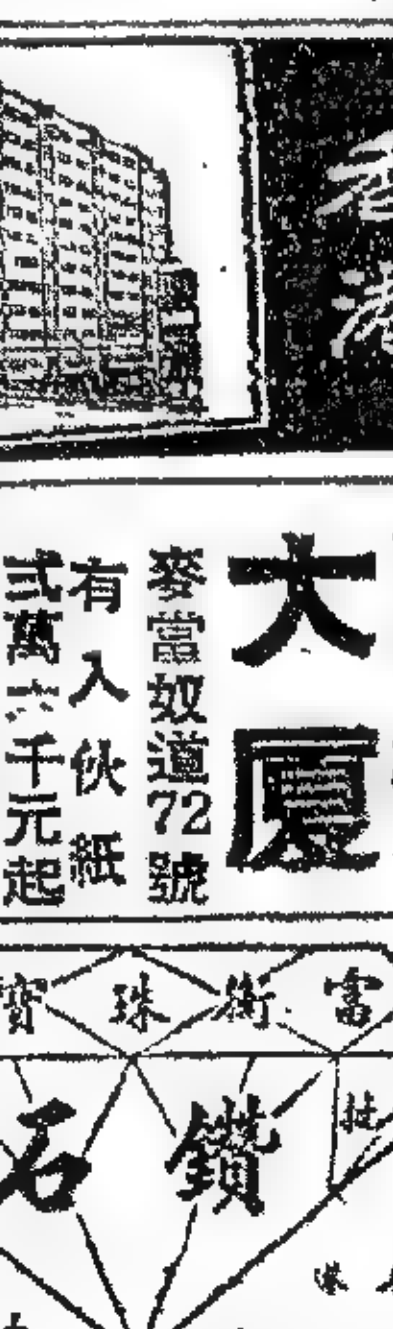 香港
大廈
麥當奴道72號
有入伙紙
弍萬六千元起
富街珠寶
鑽石